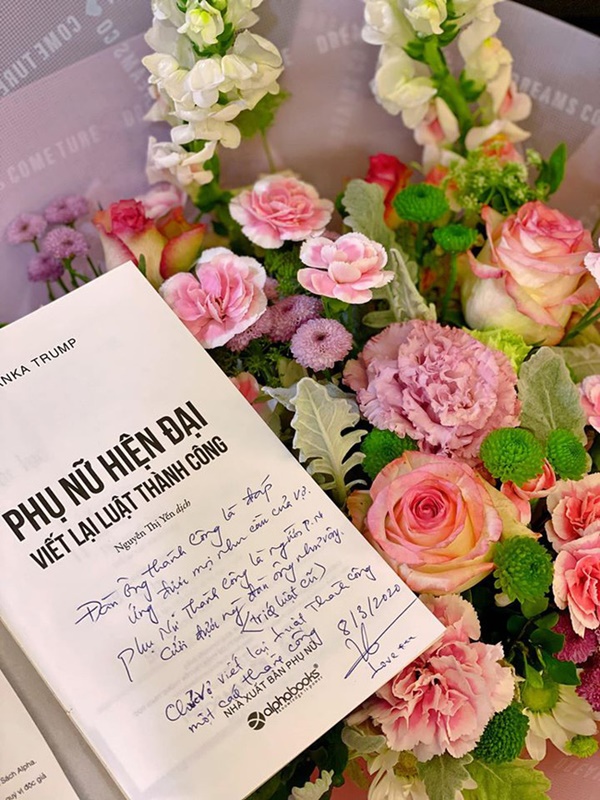 COMETURE
DREAMS CO
DREAMS COMETURE
ANKA TRUMP
PHỤ NỮ HIỆN ĐẠI
VIẾT LẠI LUẬT THÀNH CÔNG
Nguyễn Thị Yến dịch
Đàn ông thành công là đáp
ứng được mọi nhu cầu của vợ.
Phụ Nữ thành công là người P.N
cưới được ng đàn ông như vậy.
(triết luật cũ)
Chúc vợ viết lại luật thành công
một cách thành công
8/3/2020
Love
NHÀ XUẤT BẢN PHỤ NỮ
alphabooks
Sách Alpha.
quý vị độc giả